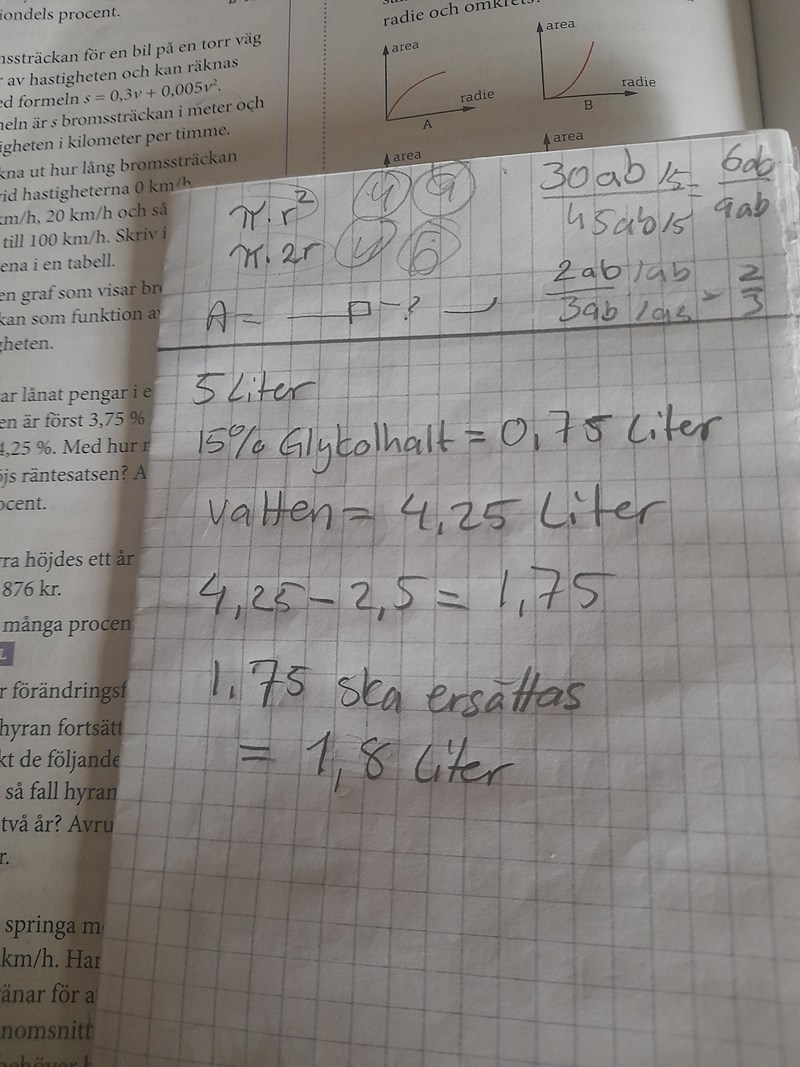 iondels procent.
nssträckan för en bil på en torr väg
av hastigheten och kan räknas
ed formeln s = 0,3v + 0,005v².
neln är s bromssträckan i meter och
igheten i kilometer per timme.
kna ut hur lång bromssträckan
vid hastigheterna 0 km/h,
km/h, 20 km/h och så
till 100 km/h. Skriv i
ena i en tabell.
en graf som visar br
kan som funktion a
gheten.
ar lånat pengar i e
en är först 3,75 %
4,25 %. Med hur
öjs räntesatsen? A
ocent.
rra höjdes ett år
876 kr.
många procen
L
r förändringsf
hyran fortsätt
kt de följande
så fall hyran
två år? Avru
r.
springa m
km/h. Har
änar för a
nomsnitt
behöver
radie och omkrets?
area
radie
A
area
radie
B
area
area
π·r² 4 9
π·2r 4 6
30ab/5 / 45ab/5 = 6ab / 9ab
2ab/ab / 3ab/ab = 2/3
A =
5 Liter
15% Glykolhalt = 0,75 Liter
Vatten = 4,25 Liter
4,25 - 2,5 = 1,75
1,75 ska ersättas
= 1,8 Liter